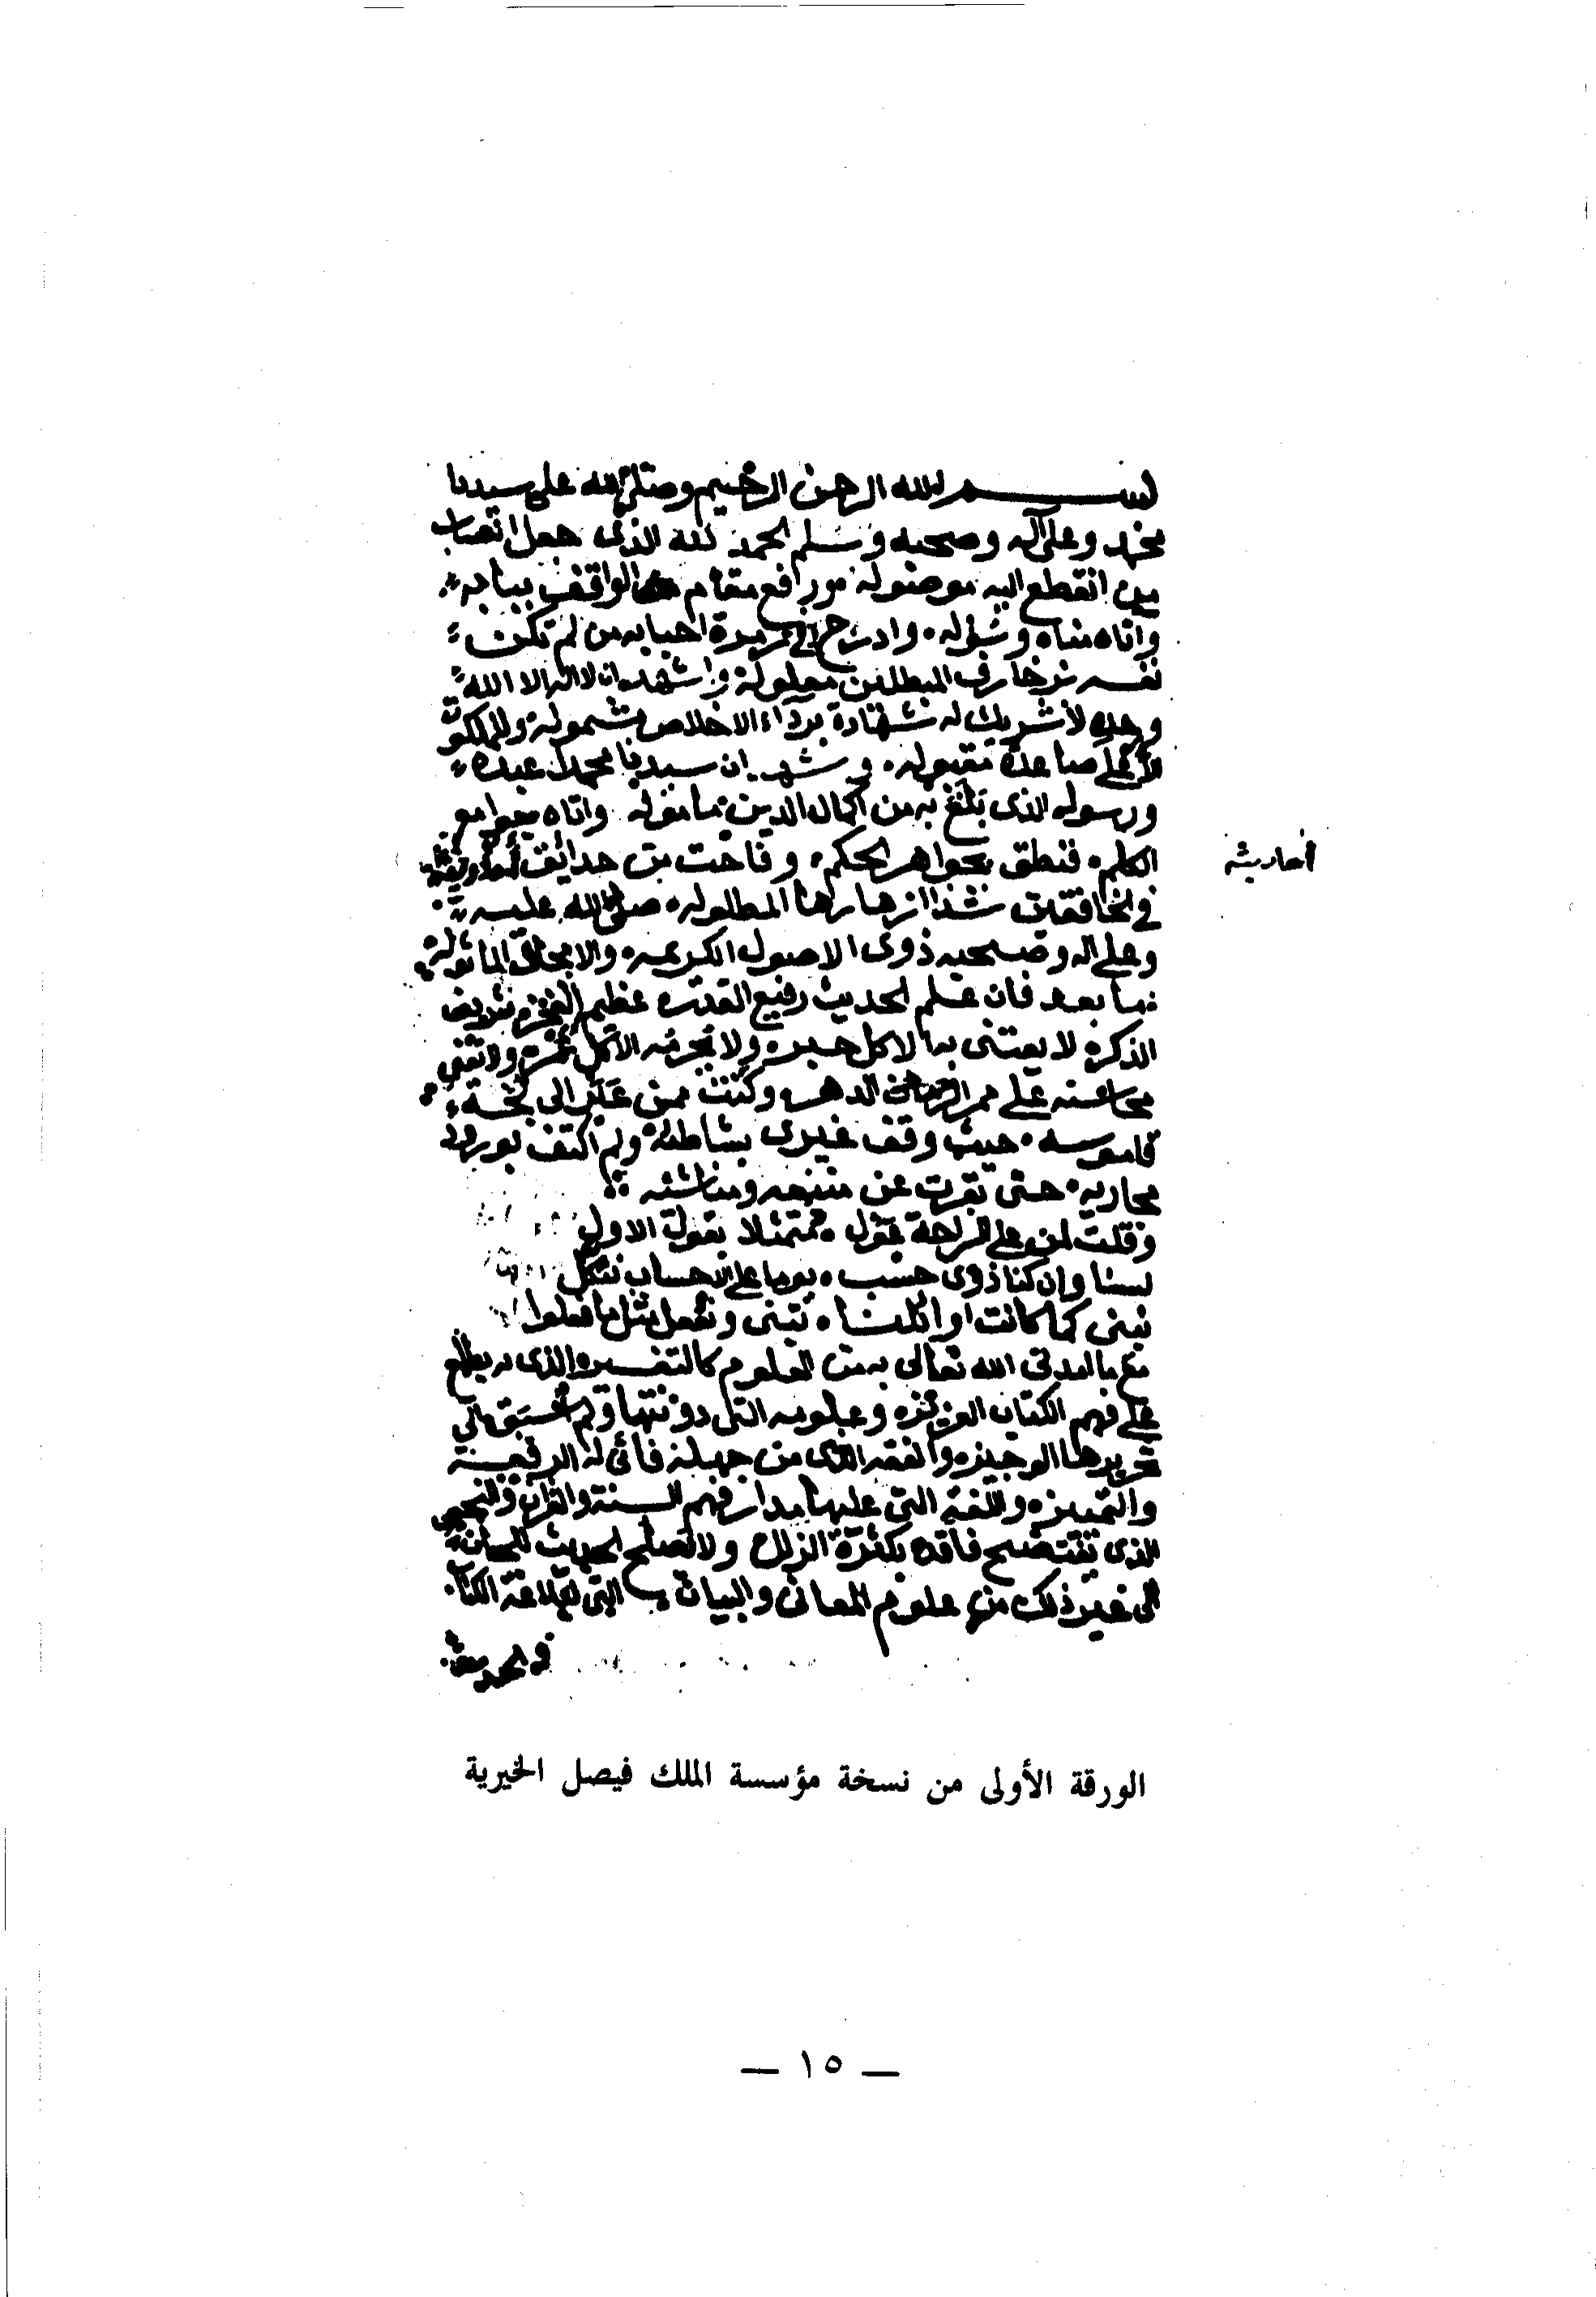 بسم الله الرحمن الرحيم وصلى الله على سيدنا
محمد وعلى آله وصحبه وسلم الحمد لله الذى جعل انتصاب
من انقطع اليه موصوله ورافع مقام الواقف ببابه
واتاه مناه وسوله وادرج فى زمرة احبابه من لم تكن
نفسه بزخارف المبطلين معلولة واشهد ان لا اله الا الله
وحده لا شريك له شهادة برداء الاخلاص مشمولة وللملكوت
الاعلى صاعدة مقبوله واشهد ان سيدنا محمدا عبده
ورسوله الذى بلغ به من اكمال الدين مأموله واتاه جوامع
الكلم فنطق بجواهر الحكم وفاحت من حدائق أحاديثه
أحاديثه
فى الخافقين شذا ازهارها المطلوله صلى الله عليه
وعلى اله وصحبه ذوى الاصول الكريمه والامجاد الماثوله
اما بعد فان علم الحديث رفيع القدر عظيم الفخر شريف
الذكر لا يعتنى به الا كل حبر ولا يحرمه الا كل غمر ولا تفنى
محاسنه على ممر الدهر وكنت ممن عبر الى لجة
قاموسه حيث وقف غيرى بشاطئه ولم اكتف بورود
مجاريه حتى بقرت عن منبعه ومناشئه
وقلت لمن على الراحة عول متمثلا بقول الاول
لسنا وان كنا ذوى حسب يوما على الاحساب نتكل
نبنى كما كانت اوائلنا تبنى ونفعل مثل ما فعلوا
مع ما امدنى الله تعالى به من العلوم كالتفسير الذى به يطلع
على فهم الكتاب العزيز وعلومه التى دونتها ولم أسبق الى
تحريرها الوجيز والفقه الذى من جهله فأنى له الرفعة
والتمييز واللغة التى عليها مدار فهم السنة والقرآن والنحو
الذى يفتضح فاقده بكثرة الزلل ولا يصلح الحديث للحان
الى غير ذلك من علوم المعانى والبيان التى لبلاغة الكتاب
والحديث
الورقة الأولى من نسخة مؤسسة الملك فيصل الخيرية
— ١٥ —